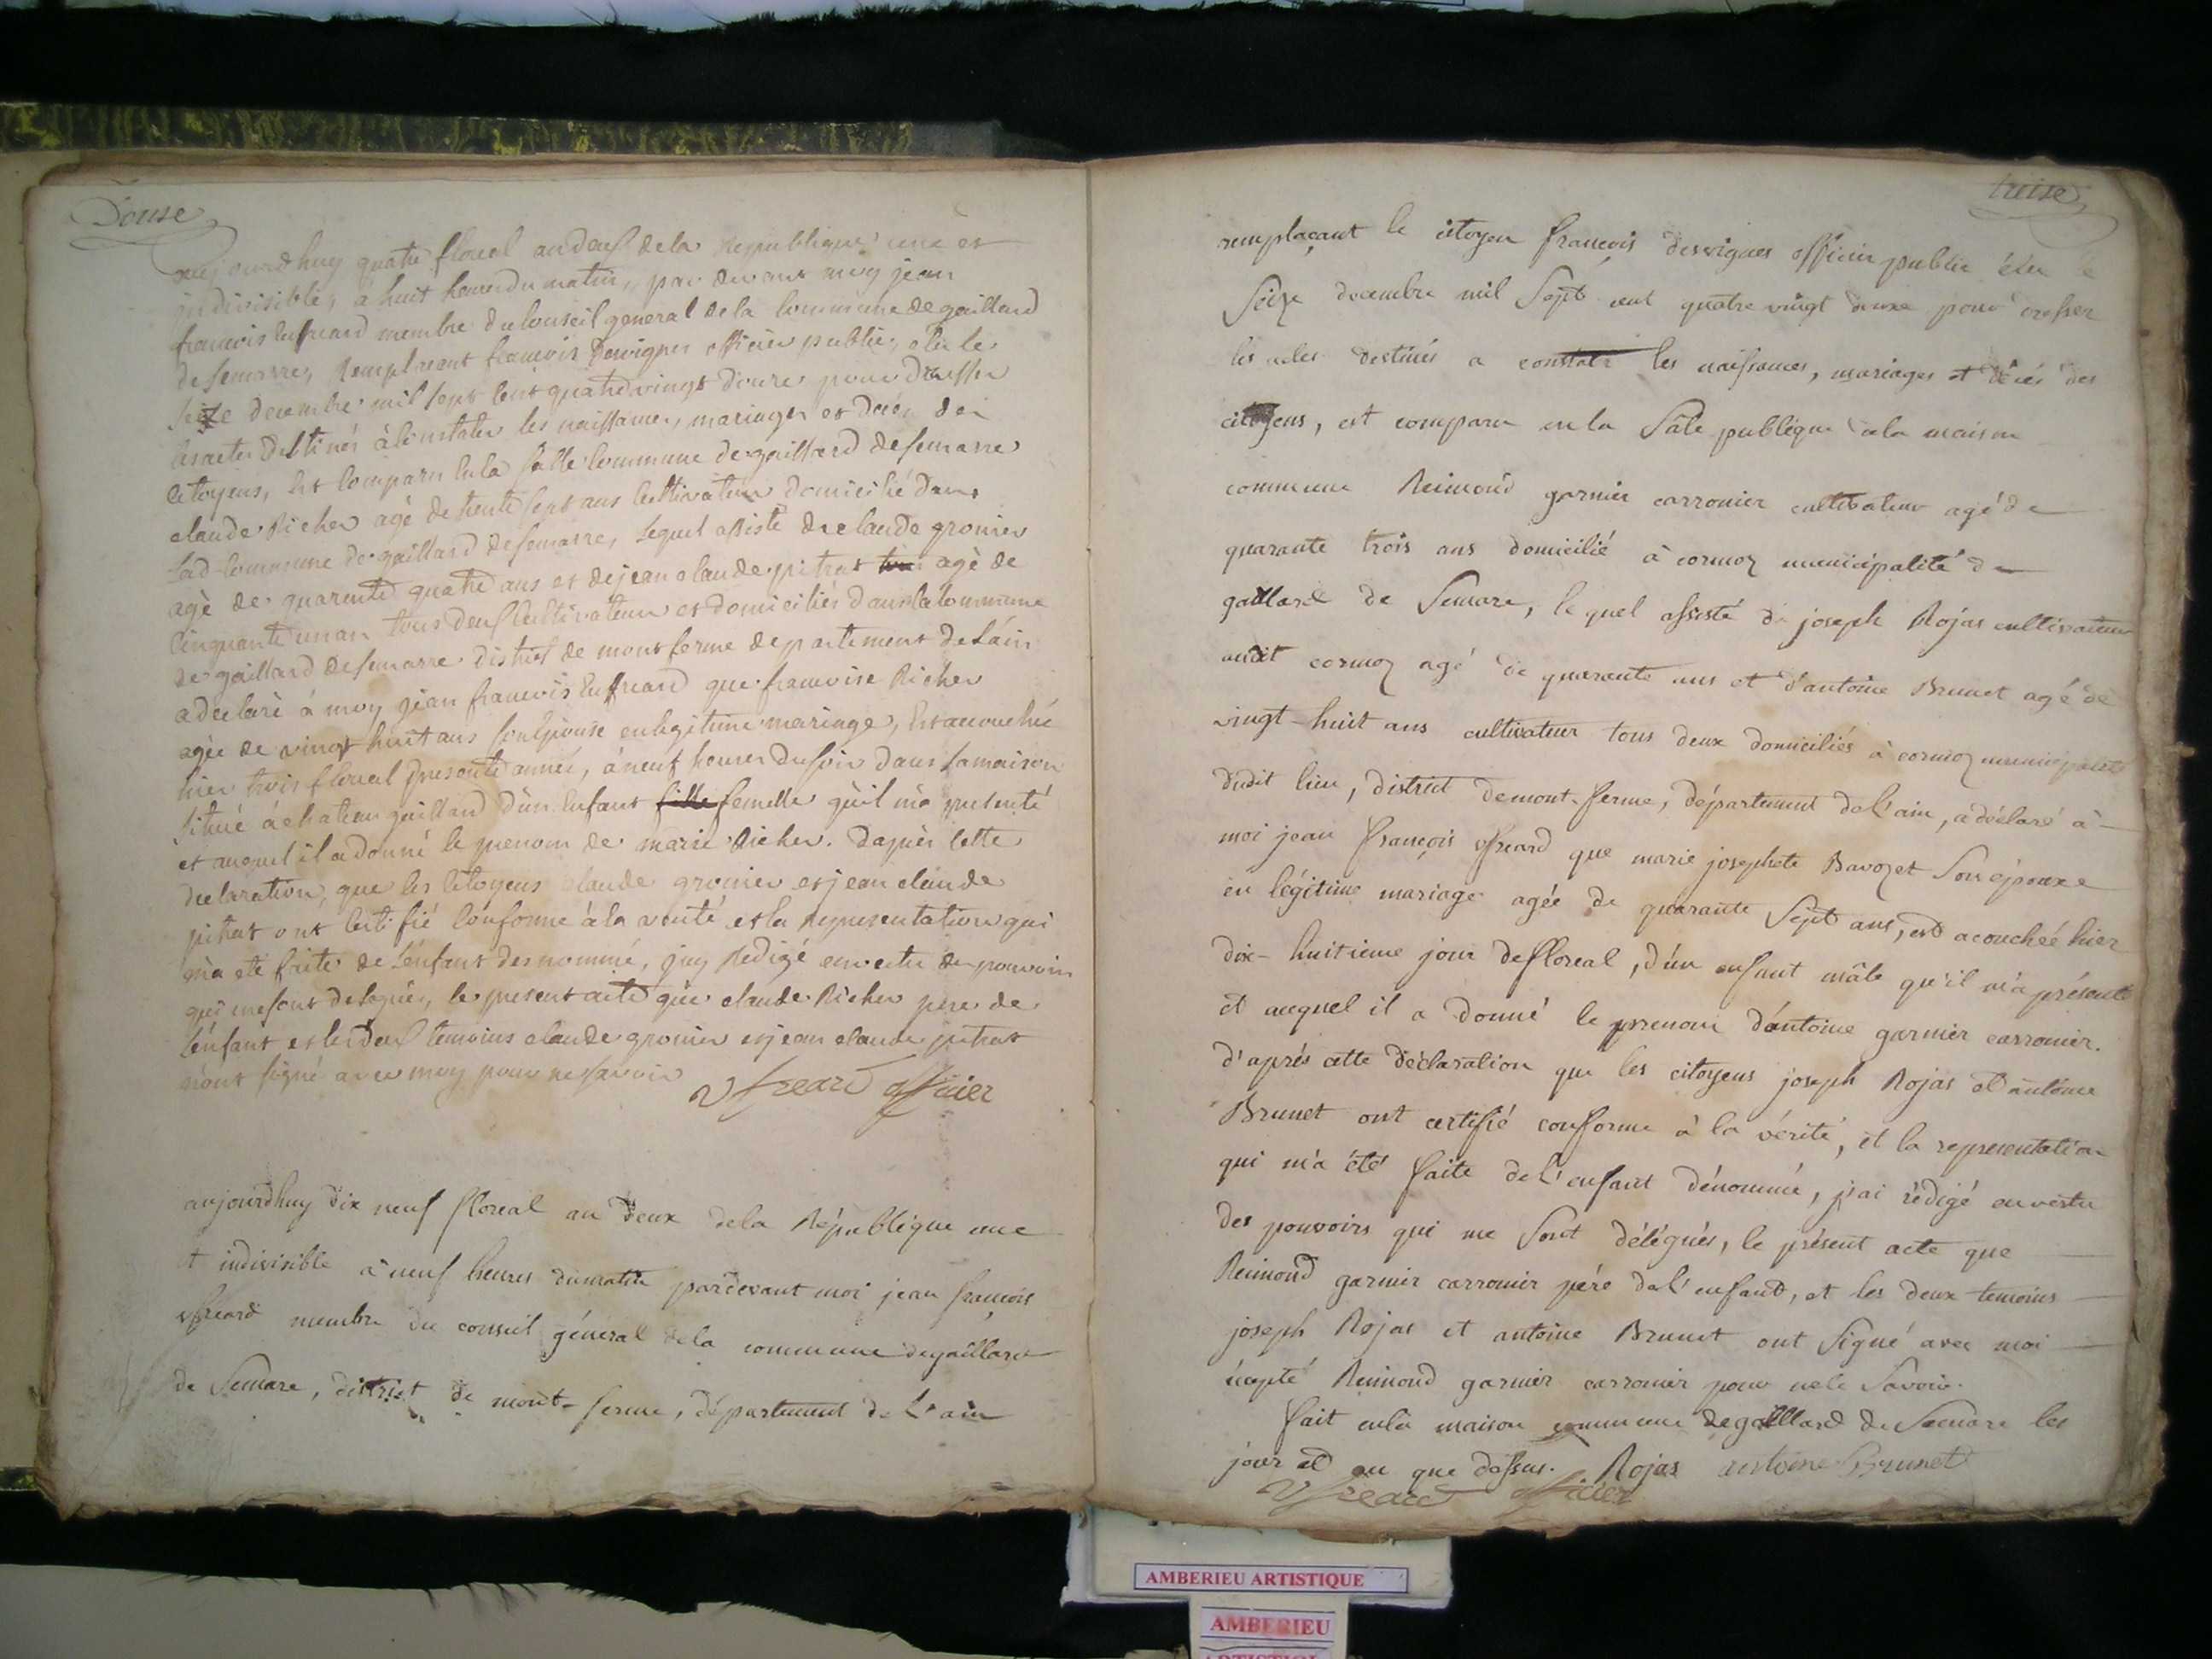 Douse
aujourdhuy quatre floreal an deux de la Republique une et
indivisible, à huit heures du matin, par devant moy jean
francois membre du Conseil general de la Commune de gaillard
de semarre, Remplacant francois Desvignes officier public, elu le
seize decembre mil sept cent quatrevingt douze pour dresser
les actes destinés à Constater les naissances, mariages et décès des
Citoyens, Est Comparu en la salle Commune de gaillard de semarre
claude Richer agé de trente sept ans Cultivateur domicilié dans
lad Commune de gaillard de semarre, lequel assisté de claude gronier
agé de quarente quatre ans et de jean claude pitrat agé de
Cinquante un an tous deux Cultivateurs et domiciliés dans la Commune
de gaillard de semarre district de mont ferme departement de L'áin
a declaré á moy jean francois que francoise Richer
agée de vingt huit ans son Epouse en legitime mariage, Est acouchée
hier trois floreal presente année, à neuf heures du soir dans sa maison
située á chateau gaillard d'un Enfant fille femelle qu'il m'a presenté
et auquel il a donné le prenom de marie Richer. Daprès Cette
declaration, que les Citoyens claude gronier et jean claude
pitrat ont Certifié Conforme à la verité et la Representation qui
m'a eté faite de L'enfant denommé, j'ay Redigé en vertu des pouvoirs
qui me sont delegués, le present acte que claude Richer pere de
L'enfant et les deux temoins claude gronier et jean claude pitrat
n'ont signé avec moy pour ne savoir
officier
aujourdhuy dix neuf floreal an deux de la République une
et indivisible à neuf heures du matin pardevant moi jean françois
membre du conseil général de la commune de gaillard
de Semare, district de mont-ferme, département de L'ain
treise
remplaçant le citoyen françois desvignes officier public élu le
Seize decembre mil Sept cent quatre vingt douze pour dresser
les actes destinés a constater les naissances, mariages et décés des
citoyens, est comparu en la Sâle publique de la maison
commune Reimond garnier carronier cultivateur agé de
quarante trois ans domicilié à cormoz municipalité de
gaillard de Semare, le quel assisté de joseph Rojas cultivateur
audit cormoz agé de quarante ans et d'antoine Brunet agé de
vingt-huit ans cultivateur tous deux domiciliés à cormoz municipalité
dudit lieu, district de mont-ferme, département de L'ain, a déclaré à
moi jean françois que marie josephete Bavozet Son épouxe
en légitime mariage agée de quarante Sept ans, est acouchée hier
dix-huitieme jour de floreal, d'un enfant mâle qu'il m'a présenté
et auquel il a donné le prenom d'antoine garnier carronier.
d'aprés cette déclaration que les citoyens joseph Rojas et antoine
Brunet ont certifié conforme à la vérité, et la representation
qui m'a été faite de L'enfant dénommé, j'ai rédigé en vertu
des pouvoirs qui me Sont délégués, le présent acte que
Reimond garnier carronier pére de L'enfant, et les deux temoins
joseph Rojas et antoine Brunet ont Signé avec moi
écepté Reimond garnier carronier pour ne le Savoir.
fait en la maison commune de gaillard de Semare les
jour et an que dessus. Rojas antoine Brunet
officier
AMBERIEU ARTISTIQUE
AMBERIEU
ARTISTIQUE